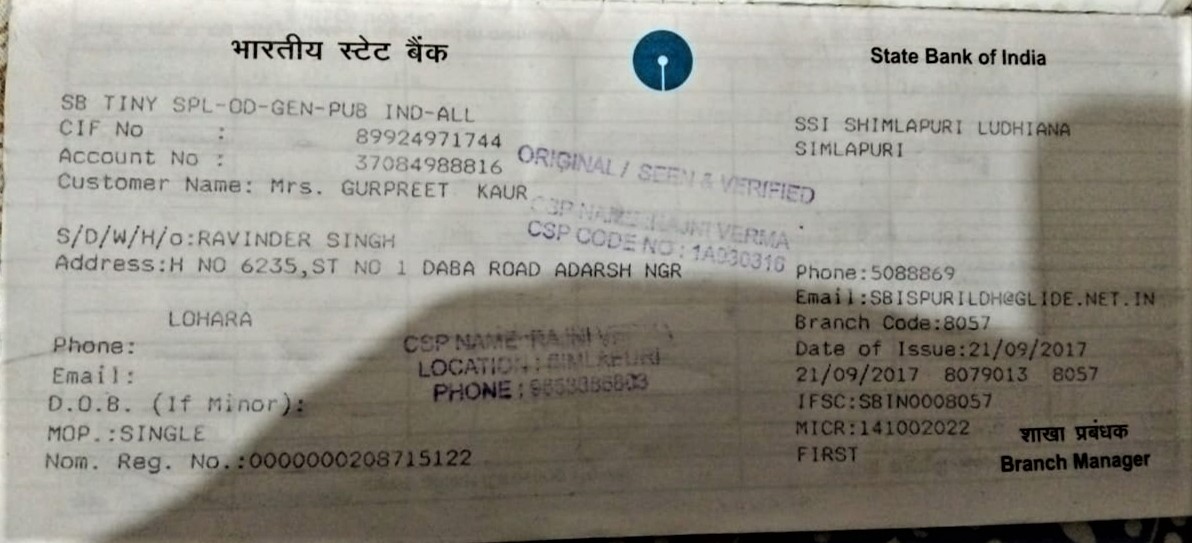 भारतीय स्टेट बैंक
State Bank of India
SB TINY SPL-OD-GEN-PUB IND-ALL
CIF No : 89924971744
Account No : 37084988816
Customer Name: Mrs. GURPREET KAUR
S/D/W/H/o:RAVINDER SINGH
Address:H NO 6235,ST NO 1 DABA ROAD ADARSH NGR
LOHARA
Phone:
Email:
D.O.B. (If Minor):
MOP.:SINGLE
Nom. Reg. No.:0000000208715122
ORIGINAL / SEEN & VERIFIED
CSP NAME RAJNI VERMA
CSP CODE NO : 1A930316
CSP NAME RAJNI
LOCATION : SIMLAPURI
PHONE :
SSI SHIMLAPURI LUDHIANA
SIMLAPURI
Phone:5088869
Email:SBISPURILDH@GLIDE.NET.IN
Branch Code:8057
Date of Issue:21/09/2017
21/09/2017 8079013 8057
IFSC:SBIN0008057
MICR:141002022
FIRST
शाखा प्रबंधक
Branch Manager